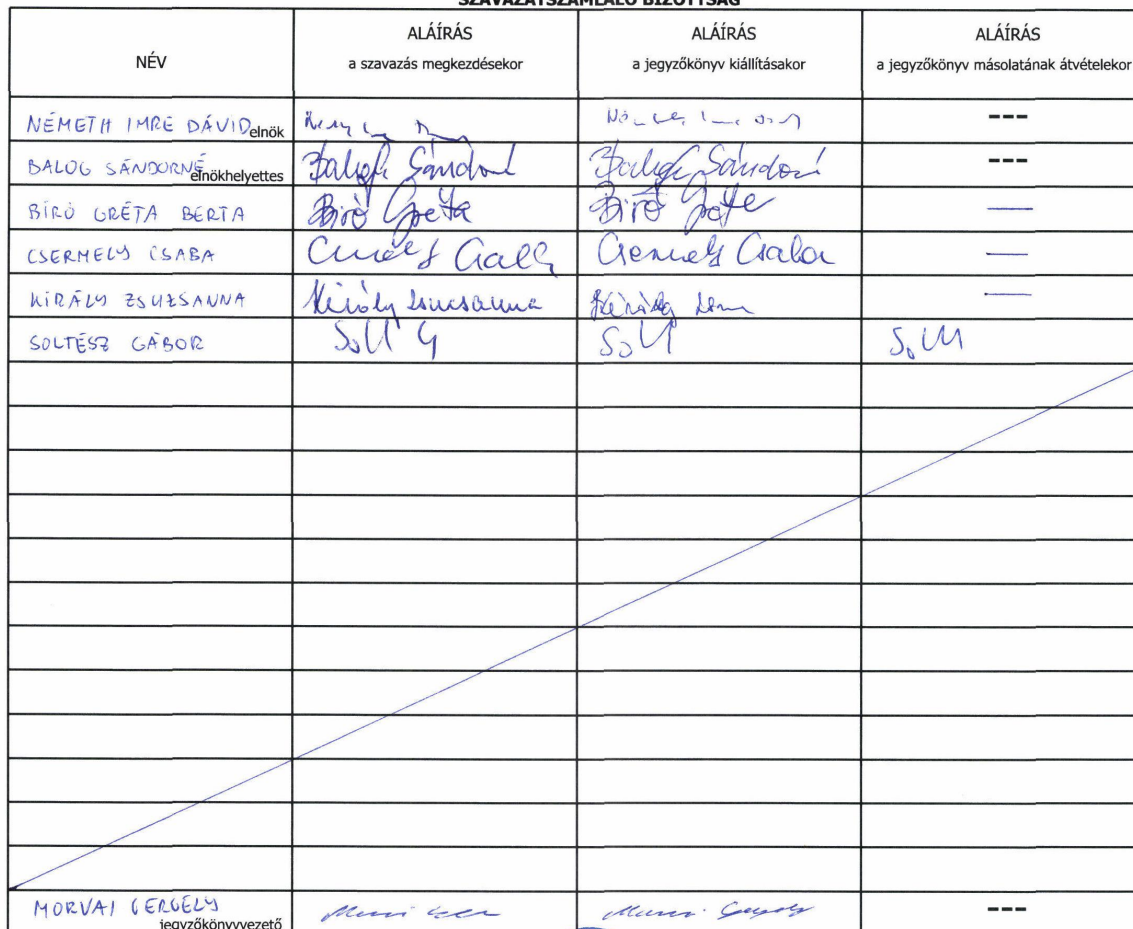 SZAVAZATSZÁMLÁLÓ BIZOTTSÁG
NÉV
ALÁÍRÁS
a szavazás megkezdésekor
ALÁÍRÁS
a jegyzőkönyv kiállításakor
ALÁÍRÁS
a jegyzőkönyv másolatának átvételekor
NÉMETH IMRE DÁVID elnök ---
BALOG SÁNDORNÉ elnökhelyettes Balogh Sándorné Balogh Sándorné ---
BÍRÓ GRÉTA BERTA Bíró Gréta Bíró Gréta —
CSERMELY CSABA Csermely Csaba Csermely Csaba —
KIRÁLY ZSUZSANNA Király Zsuzsanna Király —
SOLTÉSZ GÁBOR
MORVAI GERGELY jegyzőkönyvvezető ---